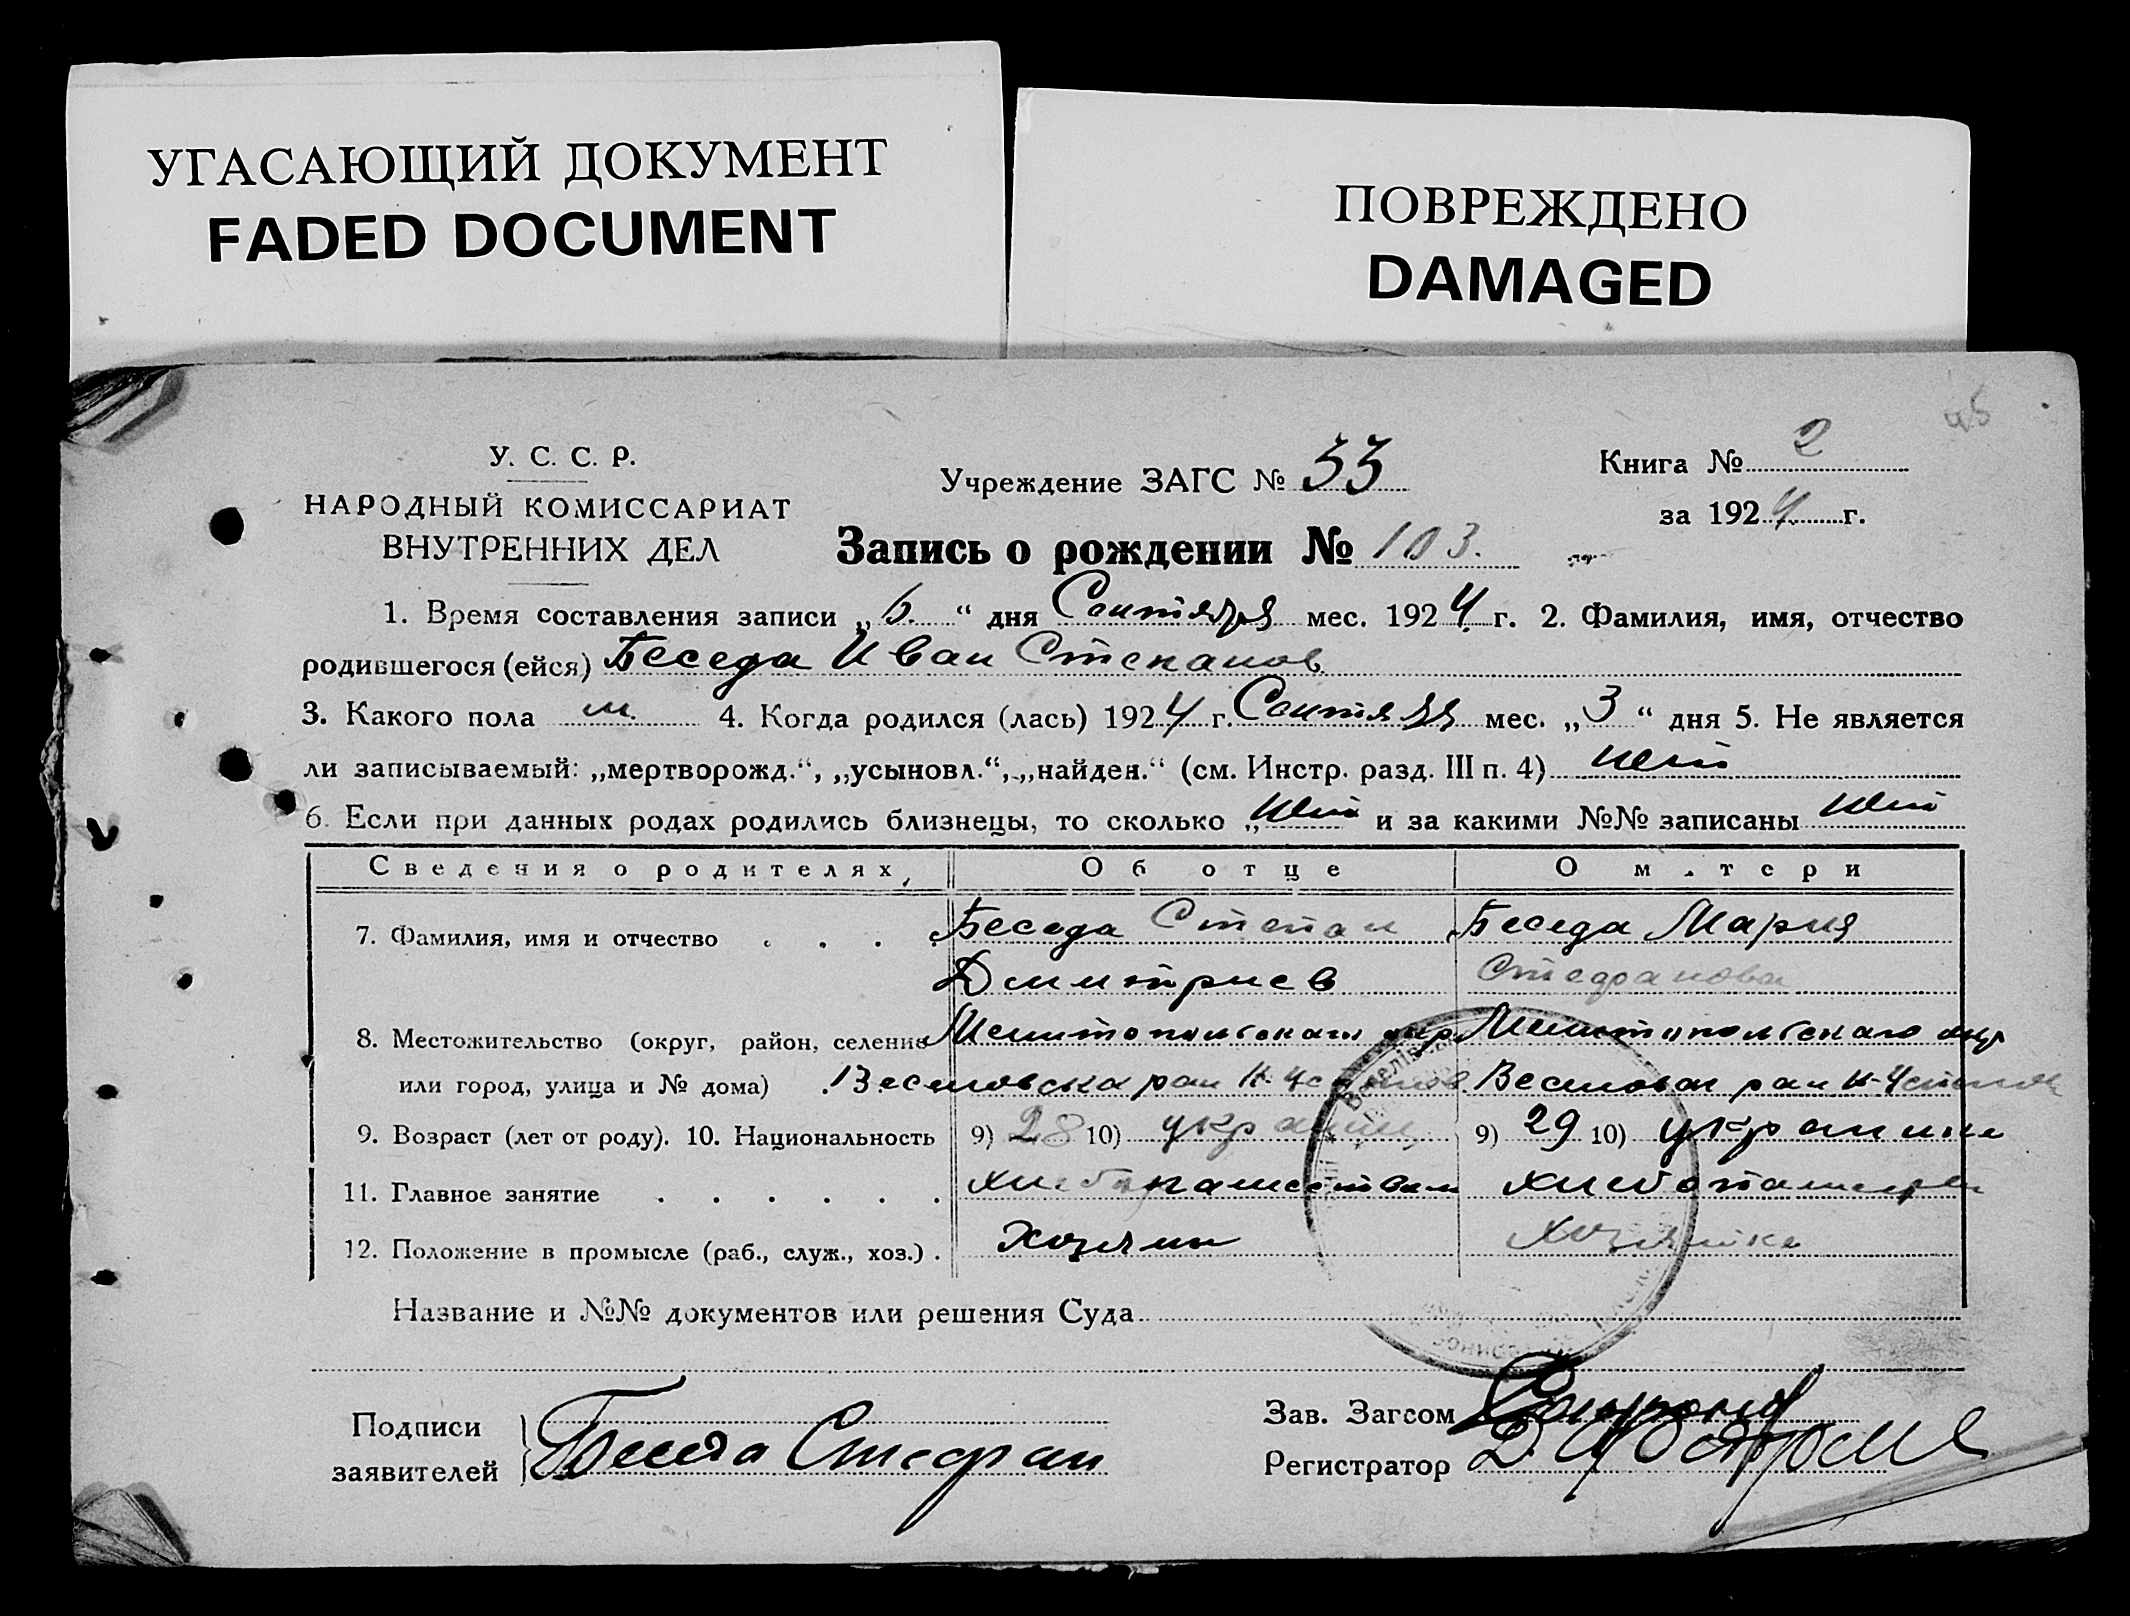 УГАСАЮЩИЙ ДОКУМЕНТ
FADED DOCUMENT
ПОВРЕЖДЕНО
DAMAGED
45
У. С. С. Р.
НАРОДНЫЙ КОМИССАРИАТ
ВНУТРЕННИХ ДЕЛ
Учреждение ЗАГС № 33
Книга № 2
за 1924 г.
Запись о рождении № 103.
1. Время составления записи „6.“ дня Сентября мес. 1924 г. 2. Фамилия, имя, отчество
родившегося (ейся) Беседа Иван Степанов
3. Какого пола м. 4. Когда родился (лась) 1924 г. Сентября мес. „3“ дня 5. Не является
ли записываемый: „мертворожд.“, „усыновл.“, „найден.“ (см. Инстр. разд. III п. 4) нет
6. Если при данных родах родились близнецы, то сколько „нет и за какими №№ записаны нет
Сведения о родителях, Об отце О м.тери
7. Фамилия, имя и отчество . . . . Беседа Степан Беседа Мария
Димитриев Стефанова
8. Местожительство (округ, район, селение Мелитопольского окр Мелитопольского окр
или город, улица и № дома) . Веселовска рай Н- Веселовск рай Н-
9. Возраст (лет от роду). 10. Национальность 9) 28 10) украин 9) 29 10) украинка
11. Главное занятие . . . . . . хлебопашеством
12. Положение в промысле (раб., служ., хоз.) . Хозяин Хозяйка
Название и №№ документов или решения Суда
Подписи
заявителей } Беседа Стефан
Зав. Загсом
Регистратор